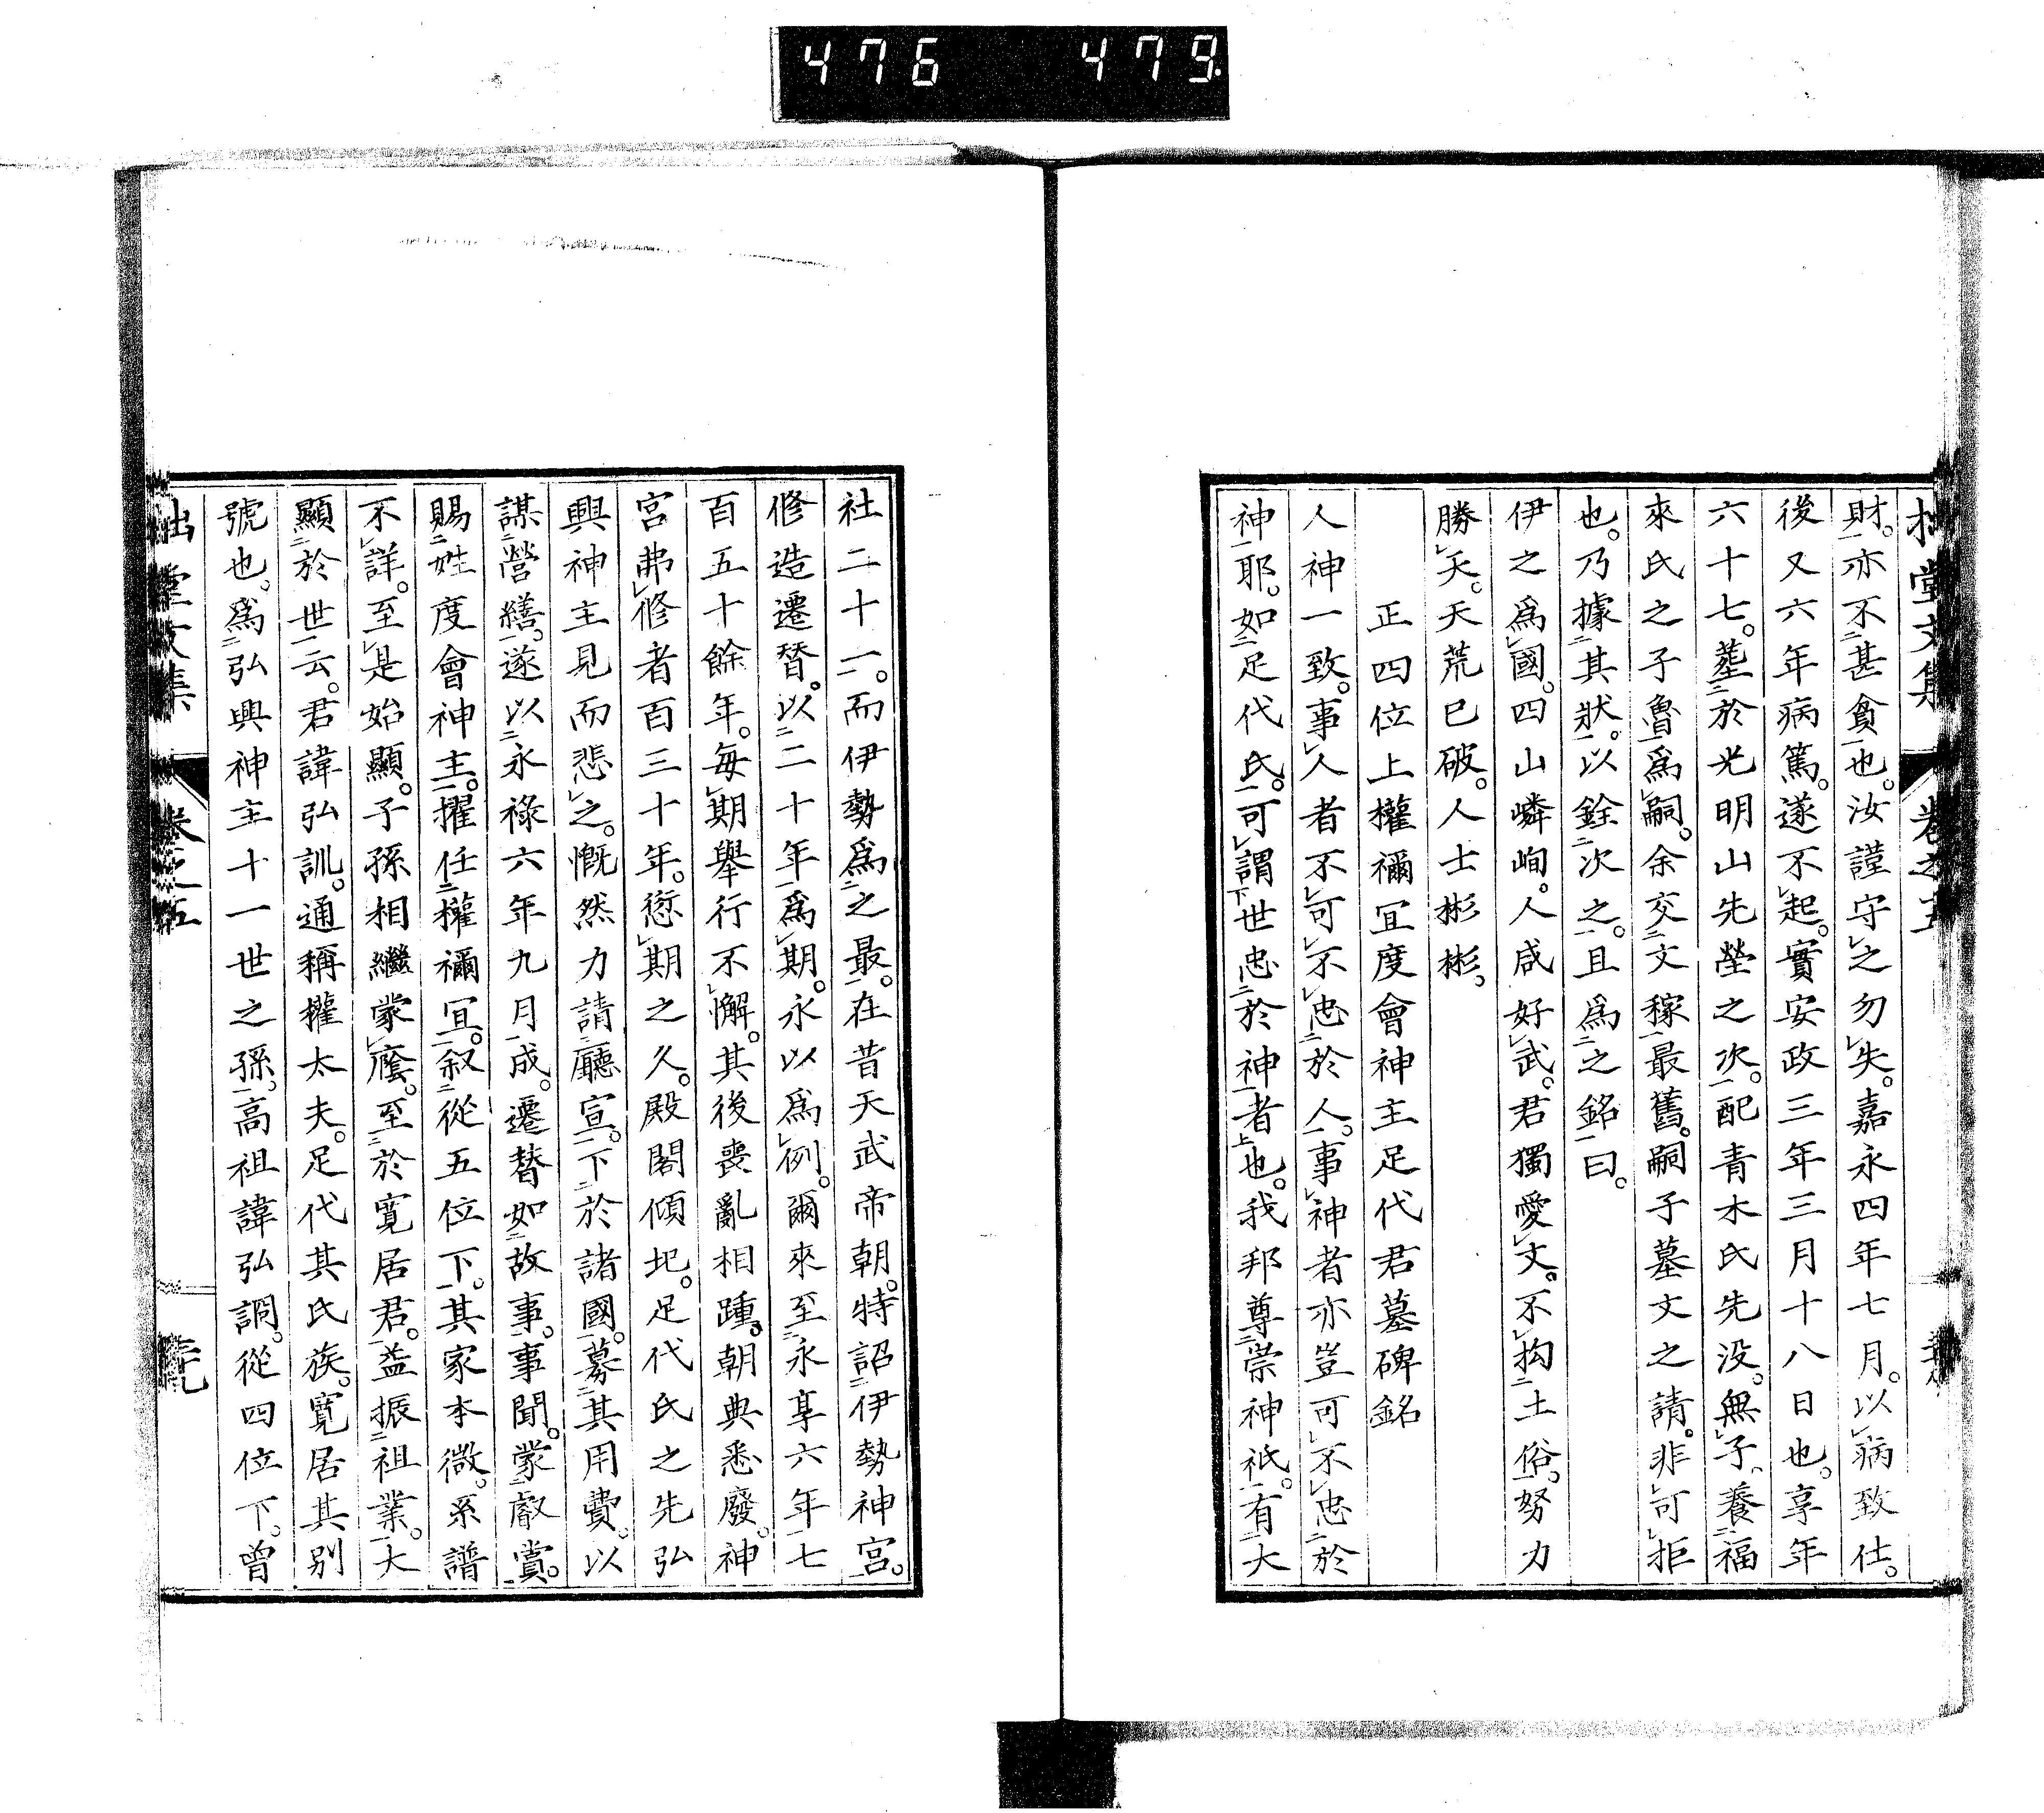 476 479
財。亦不甚貪也。汝謹守之勿失。嘉永四年七月。以病致仕。
後又六年病篤。遂不起。實安政三年三月十八日也。享年
六十七。葬於光明山先塋之次。配青木氏先没。無子、養福
來氏之子魯爲嗣。余交文稼最舊。嗣子墓文之請。非可拒
也。乃據其狀。以銓次之。且爲之銘曰。
伊之爲國。四山嶙峋。人咸好武。君獨愛文。不拘土俗。努力
勝天。天荒已破。人士彬彬。
正四位上權禰宜度會神主足代君墓碑銘
人神一致。事人者不可不忠於人。事神者亦豈可不忠於
神耶。如足代氏。可謂世忠於神者也。我邦尊崇神祇。有大
社二十二。而伊勢爲之最。在昔天武帝朝。特詔伊勢神宮。
修造遷替。以二十年爲期。永以爲例。爾來至永享六年七
百五十餘年。每期舉行不懈。其後喪亂相踵。朝典悉廢。神
宮弗修者百三十年。愆期之久。殿閣傾圯。足代氏之先弘
興神主見而悲之。慨然力請廳宣。下於諸國。募其用費。以
謀營繕。遂以永祿六年九月成。遷替如故事。事聞。蒙叡賞。
賜姓度會神主。擢任權禰宜。叙從五位下。其家本微。系譜
不詳。至是始顯。子孫相繼蒙廕。至於寛居君。益振祖業。大
顯於世云。君諱弘訓。通稱權太夫。足代其氏族。寛居其別
號也。爲弘興神主十一世之孫。高祖諱弘調。從四位下。曾
拙堂文集 卷之五